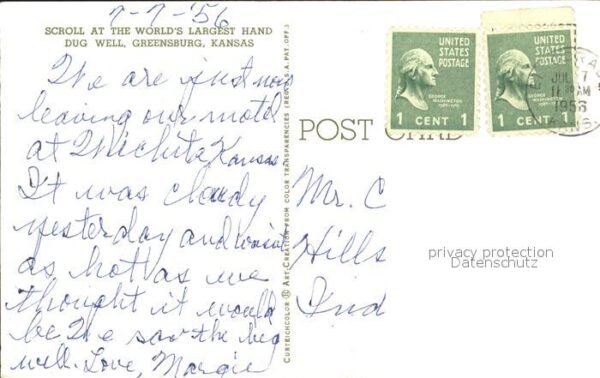 7-7-'56
SCROLL AT THE WORLD'S LARGEST HAND
DUG WELL, GREENSBURG, KANSAS
We are just now
leaving our motel
at Wichita Kansas
It was cloudy
yesterday and wasnt
as hot as we
thought it would
be We saw the big
well. Love, Margie
CURTEICHCOLOR ® ART-CREATION FROM COLOR TRANSPARENCIES (REG. U.S.A. PAT. OFF.)
POST CARD
UNITED
STATES
POSTAGE
GEORGE
WASHINGTON
1 CENT 1
UNITED
STATES
POSTAGE
GEORGE
WASHINGTON
1 CENT 1
JUL 7
AM
1956
KANS.
Mr. C
Hills
Ind
privacy protection
Datenschutz